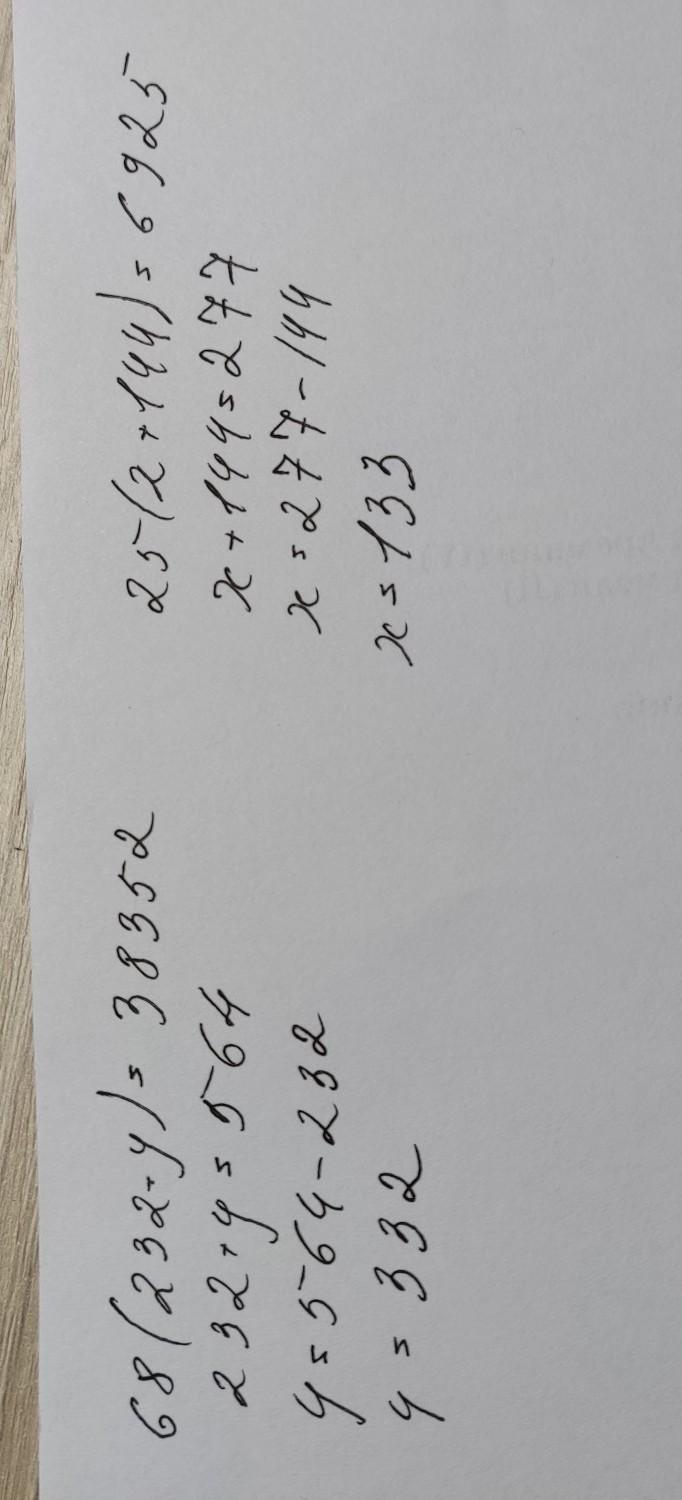 68(232+y)=38352
232+y=564
y=564-232
y=332
25(x+144)=6925
x+144=277
x=277-144
x=133